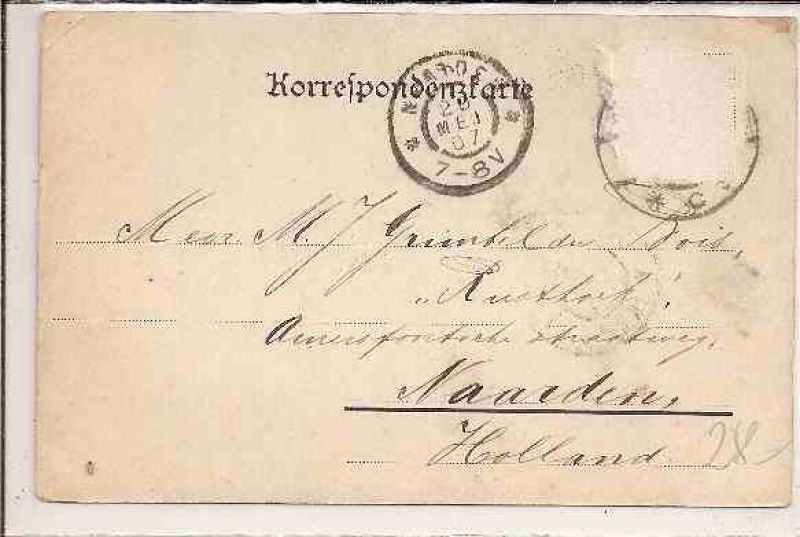 Korrespondenzkarte
MEI
07
7-8V
* C
Mevr. M. J. Grimbel du Bois,
"Rusthoek".
Amersfoortsche straatweg.
Naarden,
Holland